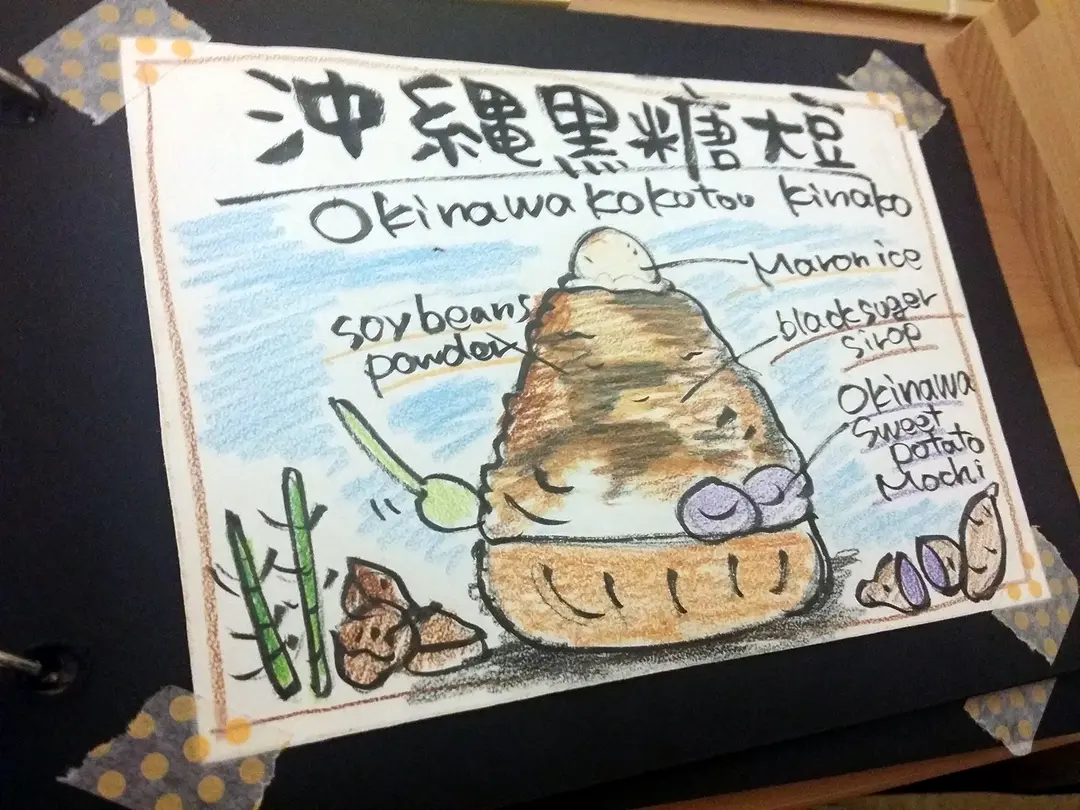 沖縄黒糖大豆
Okinawa kokotou kinako
Maron ice
soy beans
powder
black suger
sirop
Okinawa
Sweet
potato
Mochi